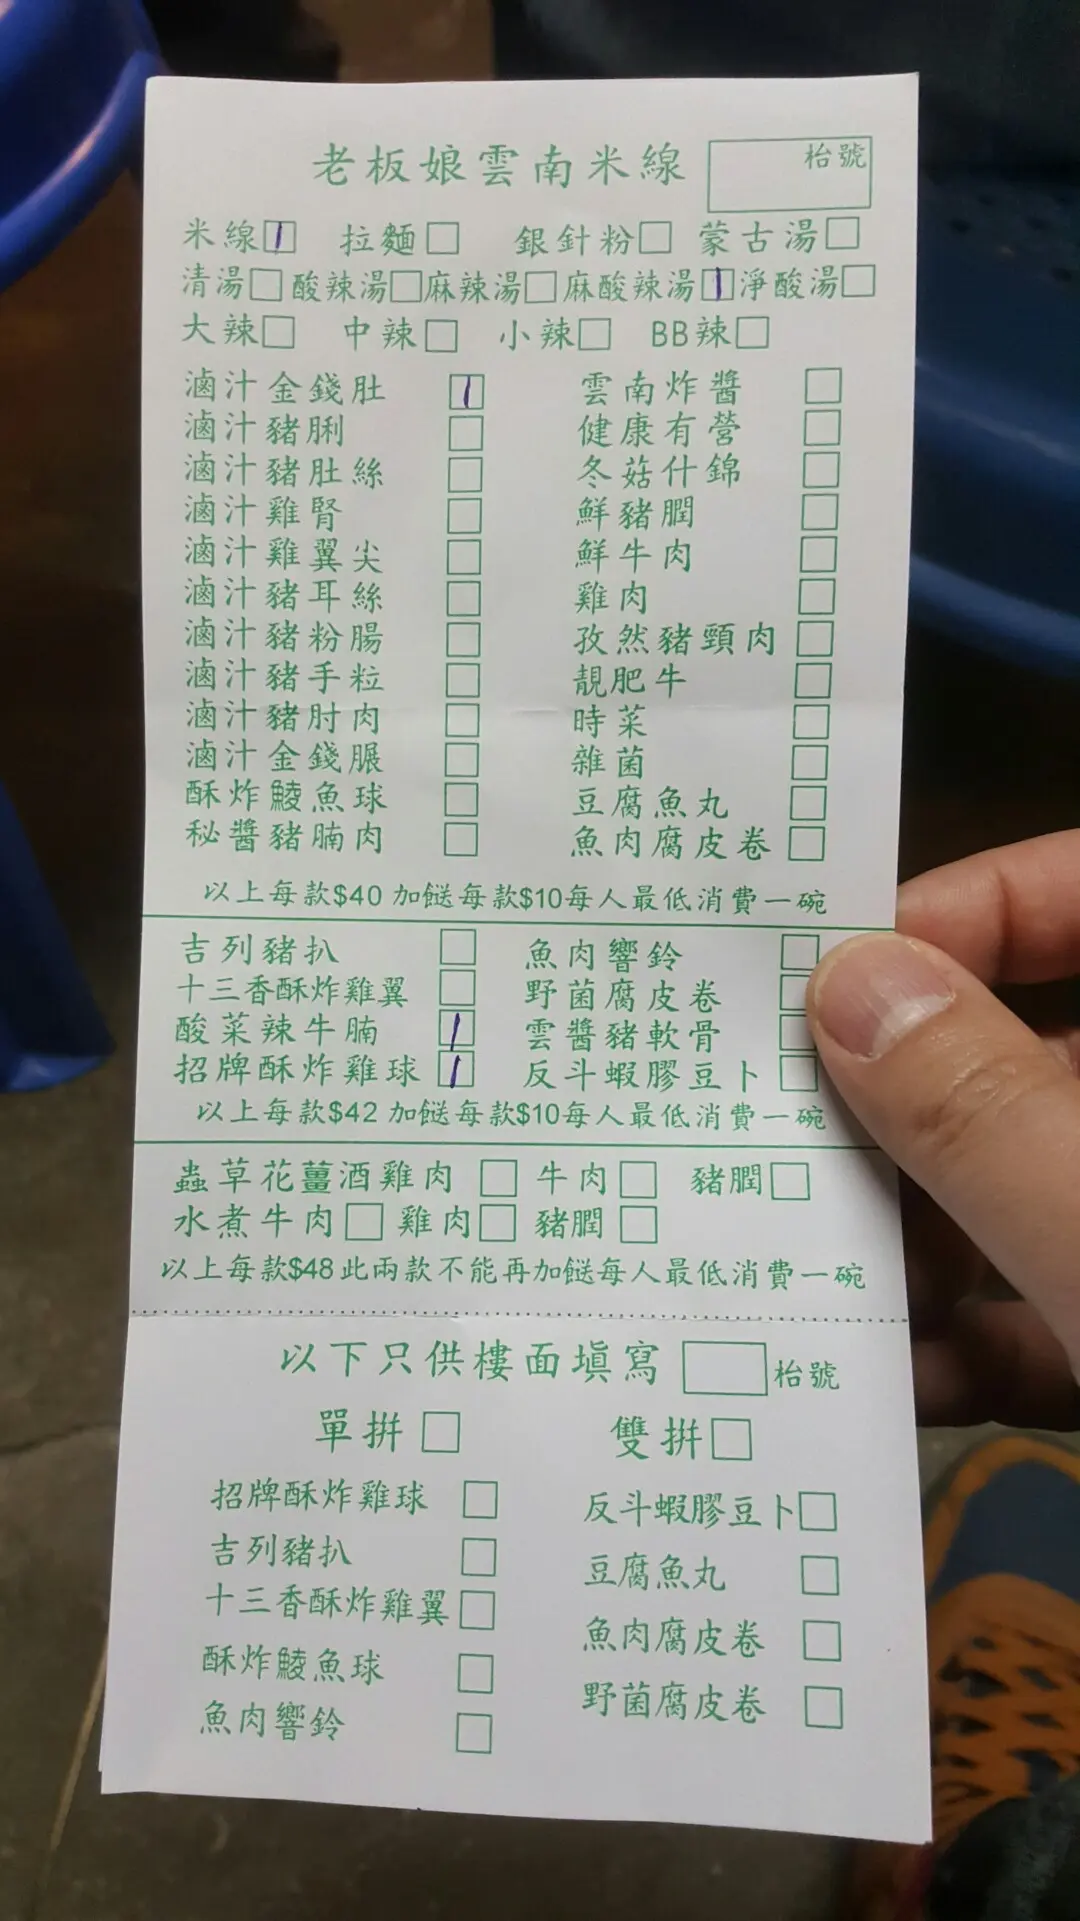 老板娘雲南米線 枱號
米線 拉麵 銀針粉 蒙古湯
清湯 酸辣湯 麻辣湯 麻酸辣湯 淨酸湯
大辣 中辣 小辣 BB辣
滷汁金錢肚 雲南炸醬
滷汁豬脷 健康有營
滷汁豬肚絲 冬菇什錦
滷汁雞腎 鮮豬膶
滷汁雞翼尖 鮮牛肉
滷汁豬耳絲 雞肉
滷汁豬粉腸 孜然豬頸肉
滷汁豬手粒 靚肥牛
滷汁豬肘肉 時菜
滷汁金錢𦟌 雜菌
酥炸鯪魚球 豆腐魚丸
秘醬豬腩肉 魚肉腐皮卷
以上每款$40 加餸每款$10每人最低消費一碗
吉列豬扒 魚肉響鈴
十三香酥炸雞翼 野菌腐皮卷
酸菜辣牛腩 雲醬豬軟骨
招牌酥炸雞球 反斗蝦膠豆卜
以上每款$42 加餸每款$10每人最低消費一碗
蟲草花薑酒雞肉 牛肉 豬膶
水煮牛肉 雞肉 豬膶
以上每款$48 此兩款不能再加餸每人最低消費一碗
以下只供樓面填寫 枱號
單拼 雙拼
招牌酥炸雞球 反斗蝦膠豆卜
吉列豬扒 豆腐魚丸
十三香酥炸雞翼 魚肉腐皮卷
酥炸鯪魚球 野菌腐皮卷
魚肉響鈴